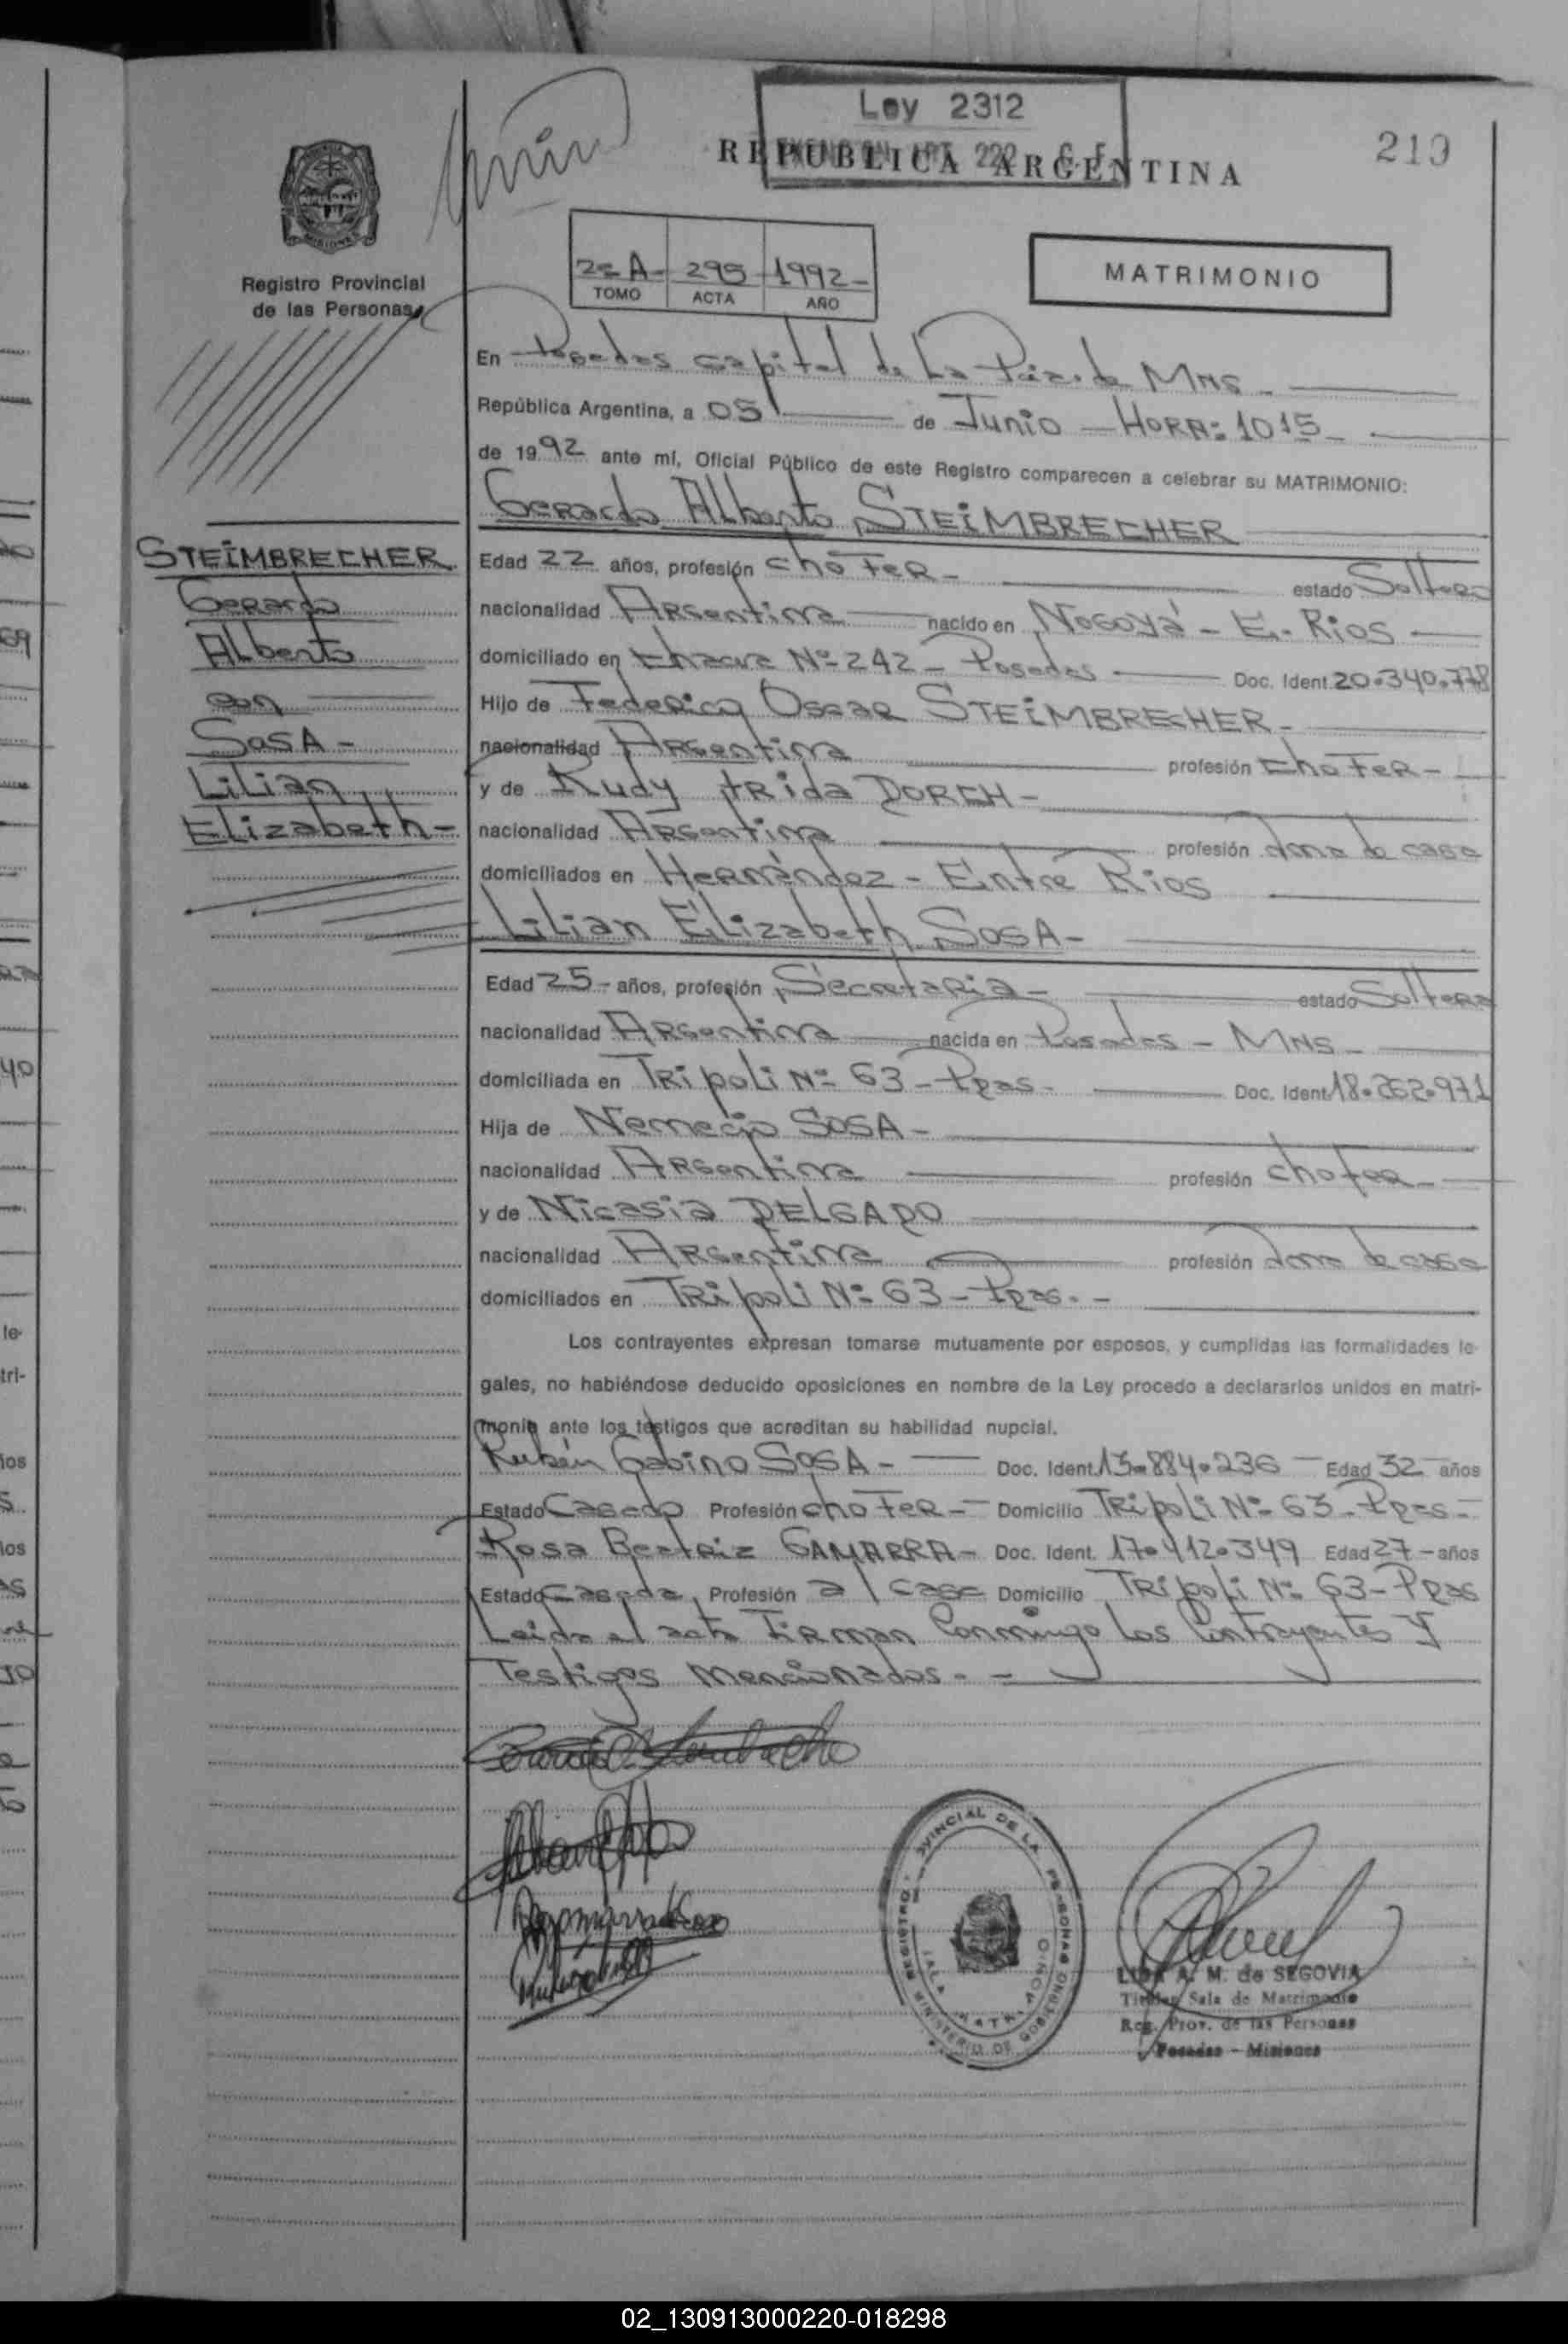 Ley 2312
REPUBLICA ARGENTINA
219
Registro Provincial
de las Personas
2=A- 295 1992-
TOMO ACTA AÑO
MATRIMONIO
En Posadas Capital de La Pcia. de MNS -
República Argentina, a 05 de Junio - HORA: 1015 -
de 1992 ante mí, Oficial Público de este Registro comparecen a celebrar su MATRIMONIO:
Gerardo Alberto STEIMBRECHER
STEIMBRECHER
Gerardo
Alberto
con
SOSA -
Lilian
Elizabeth -
Edad 22 años, profesión choFer - estado Soltero
nacionalidad Argentina nacido en Nogoyá - E. Rios
domiciliado en Chacra Nº 242 - Posadas Doc. Ident. 20.340.778
Hijo de Federico Oscar STEIMBRECHER -
nacionalidad Argentina profesión choFer -
y de Rudy Frida DORCH -
nacionalidad Argentina profesión Ama de casa
domiciliados en Hernández - Entre Rios
Lilian Elizabeth SOSA -
Edad 25 - años, profesión Secretaria - estado Soltera
nacionalidad Argentina nacida en Posadas - MNS -
domiciliada en Tripoli Nº 63 - Ppas. Doc. Ident. 18.262.971
Hija de Nemecio SOSA -
nacionalidad Argentina profesión chofer -
y de Nicasia DELGADO
nacionalidad Argentina profesión Ama de casa
domiciliados en Tripoli Nº 63 - Ppas. -
Los contrayentes expresan tomarse mutuamente por esposos, y cumplidas las formalidades le-
gales, no habiéndose deducido oposiciones en nombre de la Ley procedo a declararlos unidos en matri-
monio ante los testigos que acreditan su habilidad nupcial.
Rubén Gabino SOSA - Doc. Ident. 13.884.236 Edad 32 años
Estado Casado Profesión choFer - Domicilio Tripoli Nº 63 - Ppas -
Rosa Beatriz GAMARRA - Doc. Ident. 17.412.349 Edad 27 - años
Estado Casada Profesión a/casa Domicilio Tripoli Nº 63 - Ppas
Leída el acta Firman Conmingo Los Contrayentes Y
Testigos Mencionados. -
LIDA A. M. de SEGOVIA
Titular Sala de Matrimonio
Reg. Prov. de las Personas
Posadas - Misiones
02_130913000220-018298